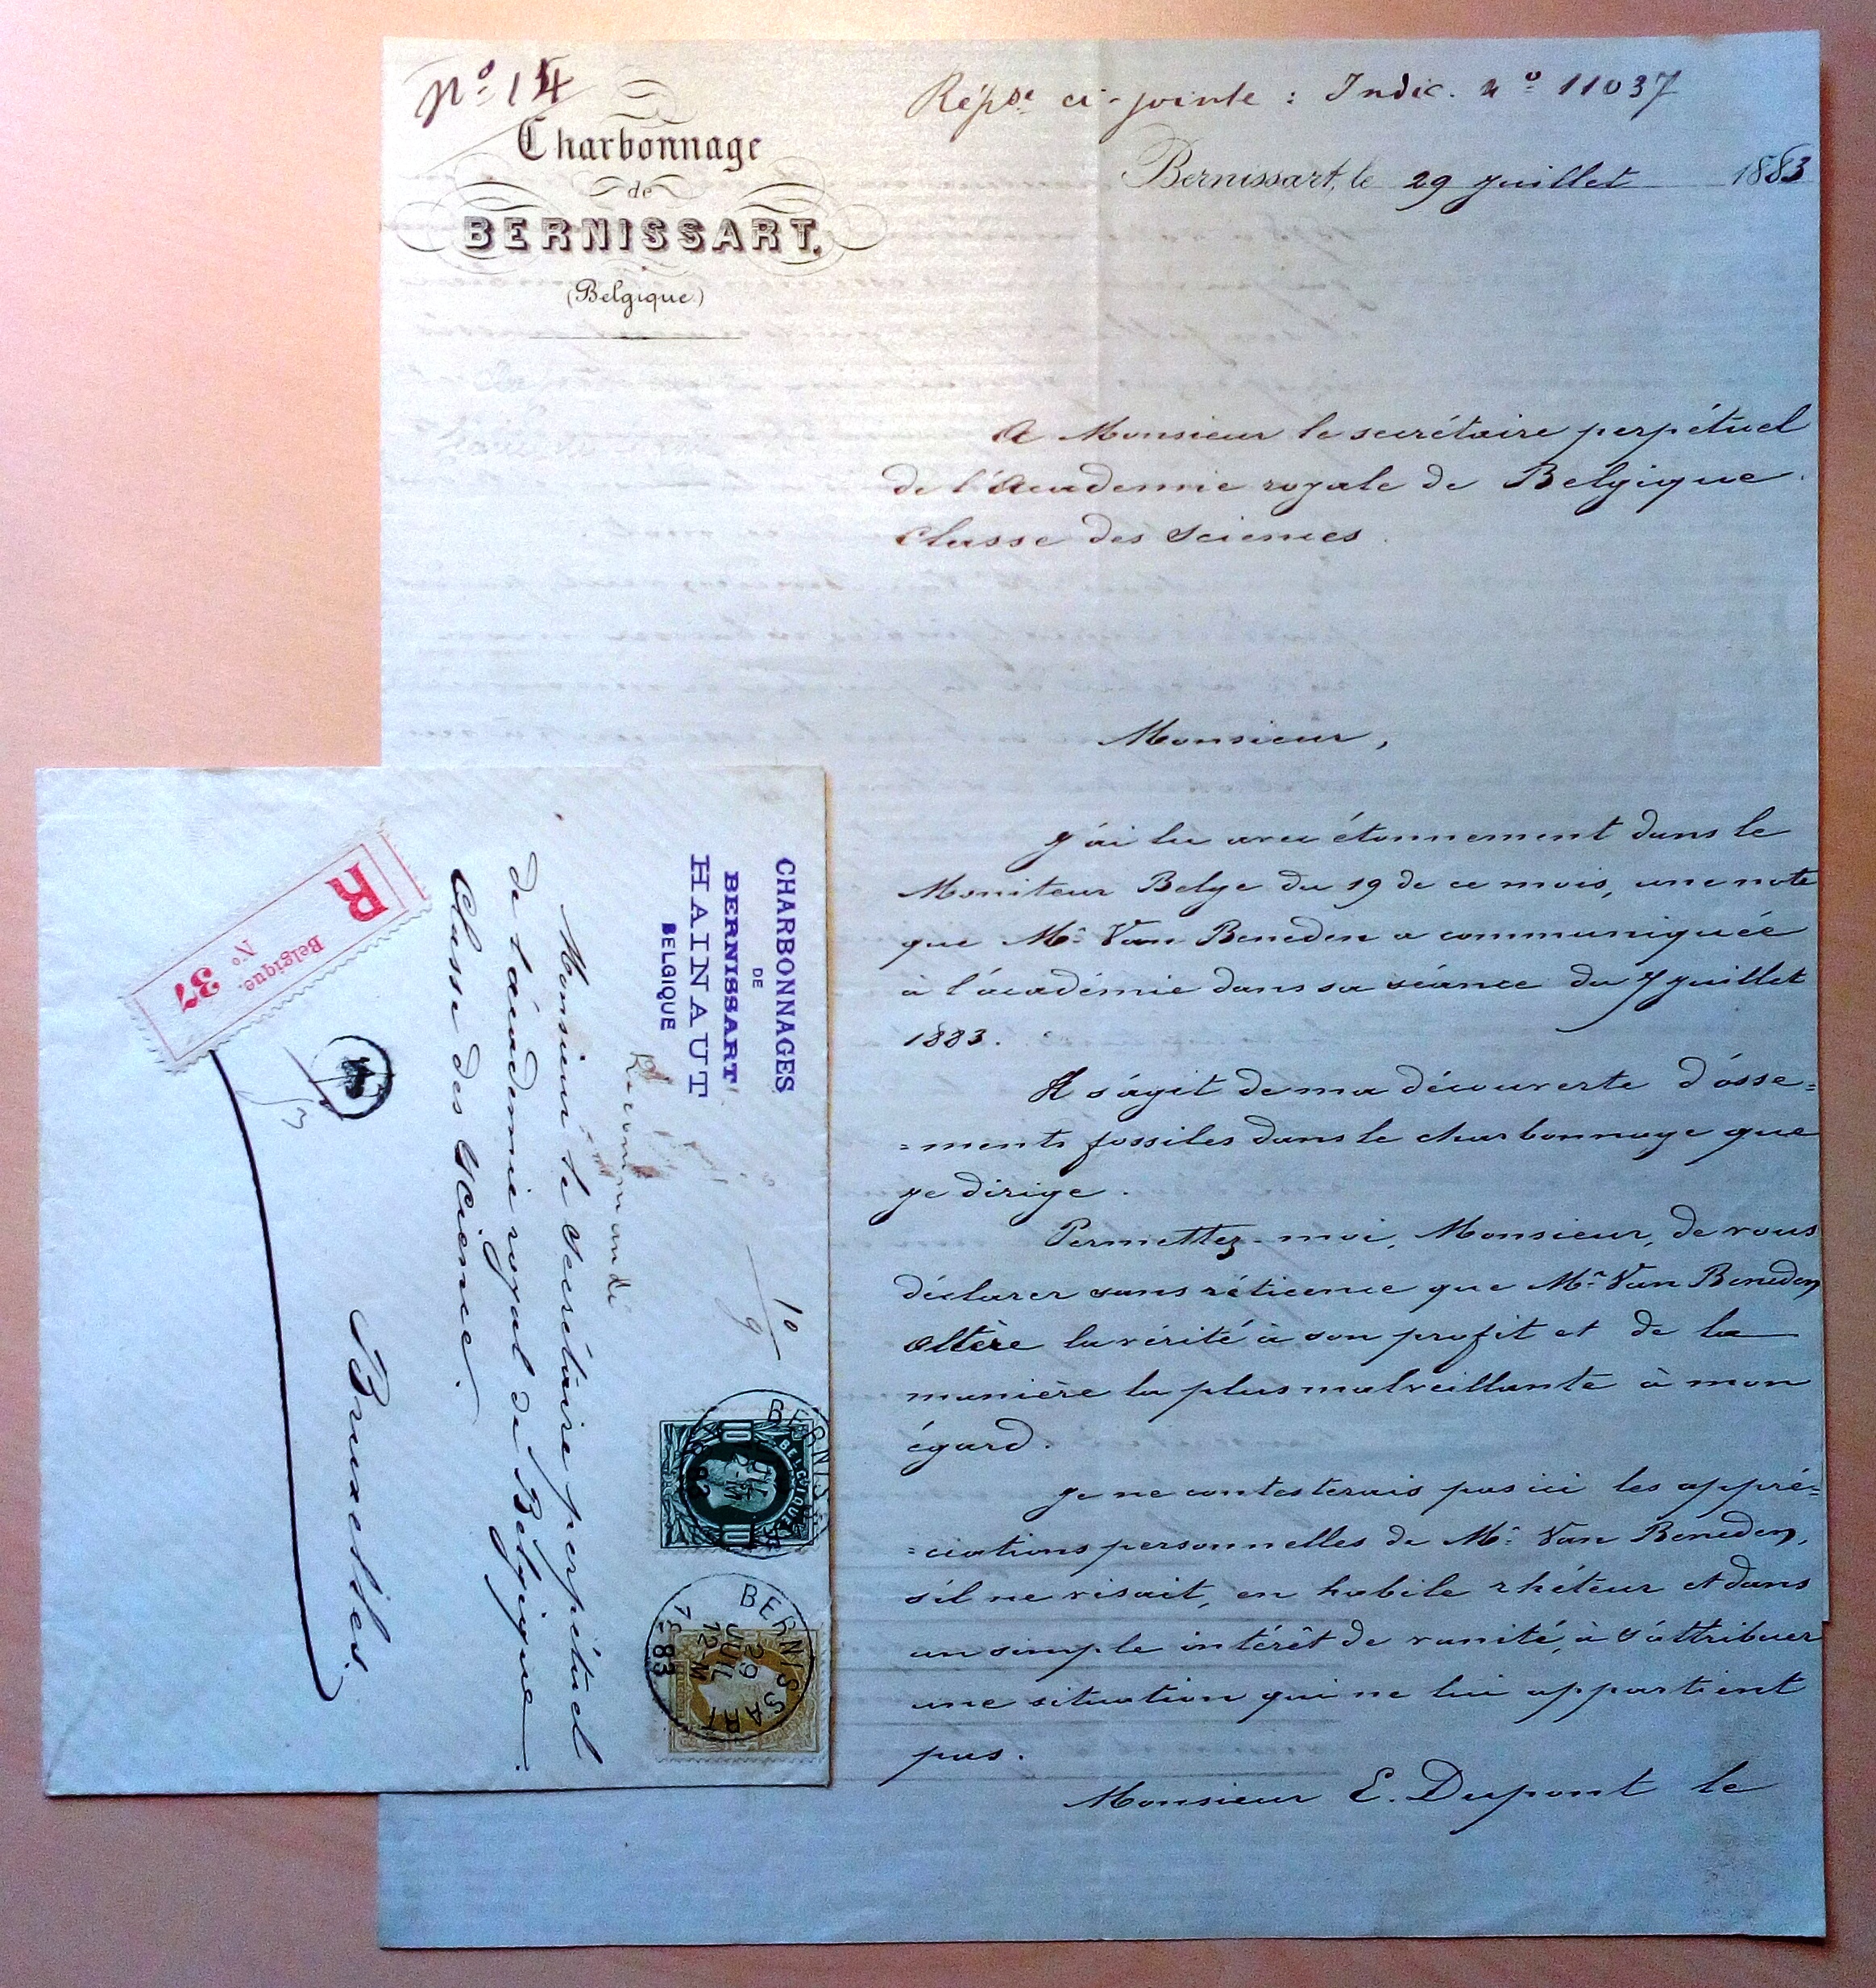 Nº 14
Charbonnage
de
BERNISSART.
(Belgique)
Répse ci-jointe : Indic. nº 11037
Bernissart, le 29 juillet 1883
A Monsieur le secrétaire perpétuel
de l'Academie royale de Belgique.
Classe des Sciences.
Monsieur,
J'ai lu avec étonnement dans le
Moniteur Belge du 19 de ce mois, une note
que Mr Van Beneden a communiquée
à l'académie dans sa séance du 7 juillet
1883.
Il s'agit de ma découverte d'osse=
=ments fossiles dans le charbonnage que
je dirige.
Permettez-moi, Monsieur, de vous
déclarer sans réticence que Mr Van Beneden
altère la vérité à son profit et de la
manière la plus malveillante à mon
égard.
Je ne contesterais pas ici les appré=
=ciations personnelles de Mr Van Beneden,
s'il ne visait, en habile rhéteur et dans
un simple intérêt de vanité, à s'attribuer
une situation qui ne lui appartient
pas.
Monsieur E. Dupont le
CHARBONNAGES
DE
BERNISSART
HAINAUT
BELGIQUE
Recommandé
Monsieur le Secrétaire perpétuel
de l'académie royal de Belgique.
Classe des Science.
Bruxelles.
R
Belgique.
Nº 37
10
9
BELGIQUE
10 10
BERNISSART
29
JUIL
12-M
1883